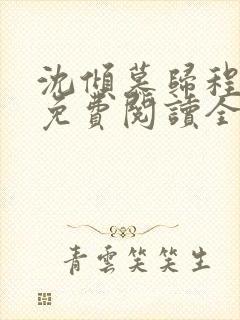 沈傾墓歸程
免費閱讀全
青雲笑笑生